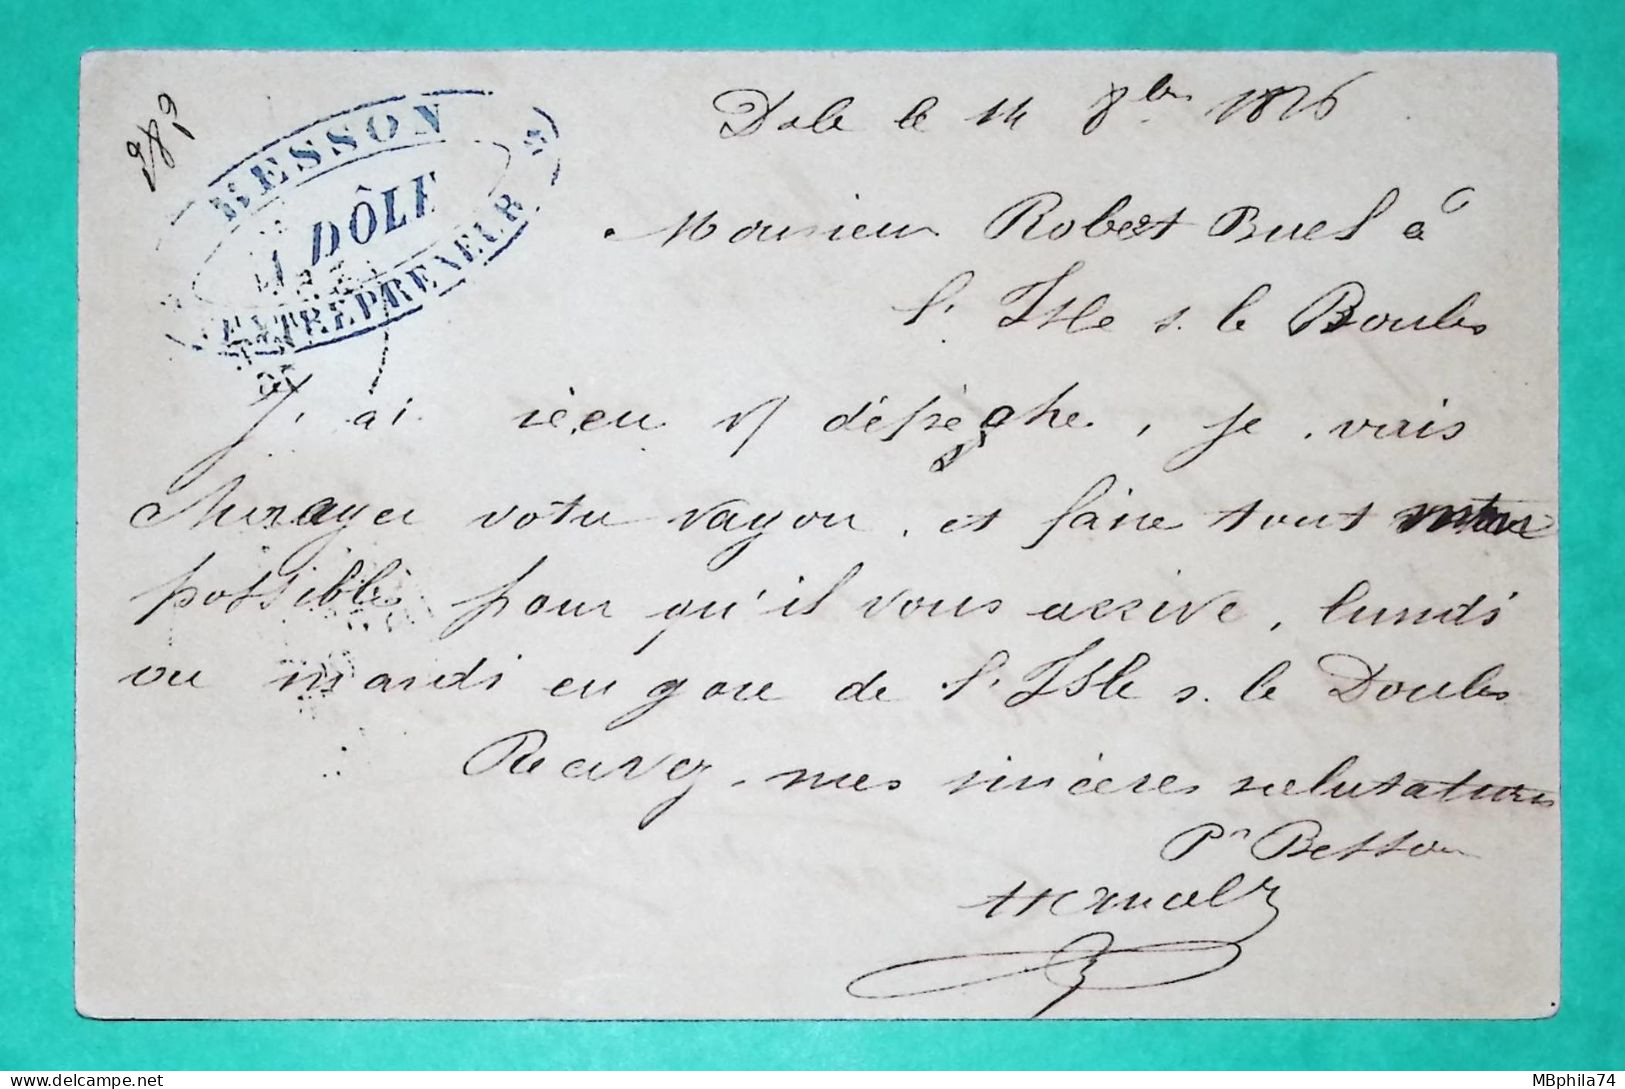 BESSON
DÔLE
ENTREPRENEUR
Dole le 14 8bre 1876
Monsieur Robert Buel à
l'Isle s. le Doubs
J'ai réçu V/ dépèche, je vais
votre vagon, et faire tout
possible pour qu'il vous arrive, lundi
ou mardi en gare de l'Isle s. le Doubs
Recevez mes sincères salutations
Pr Besson
MBphila74